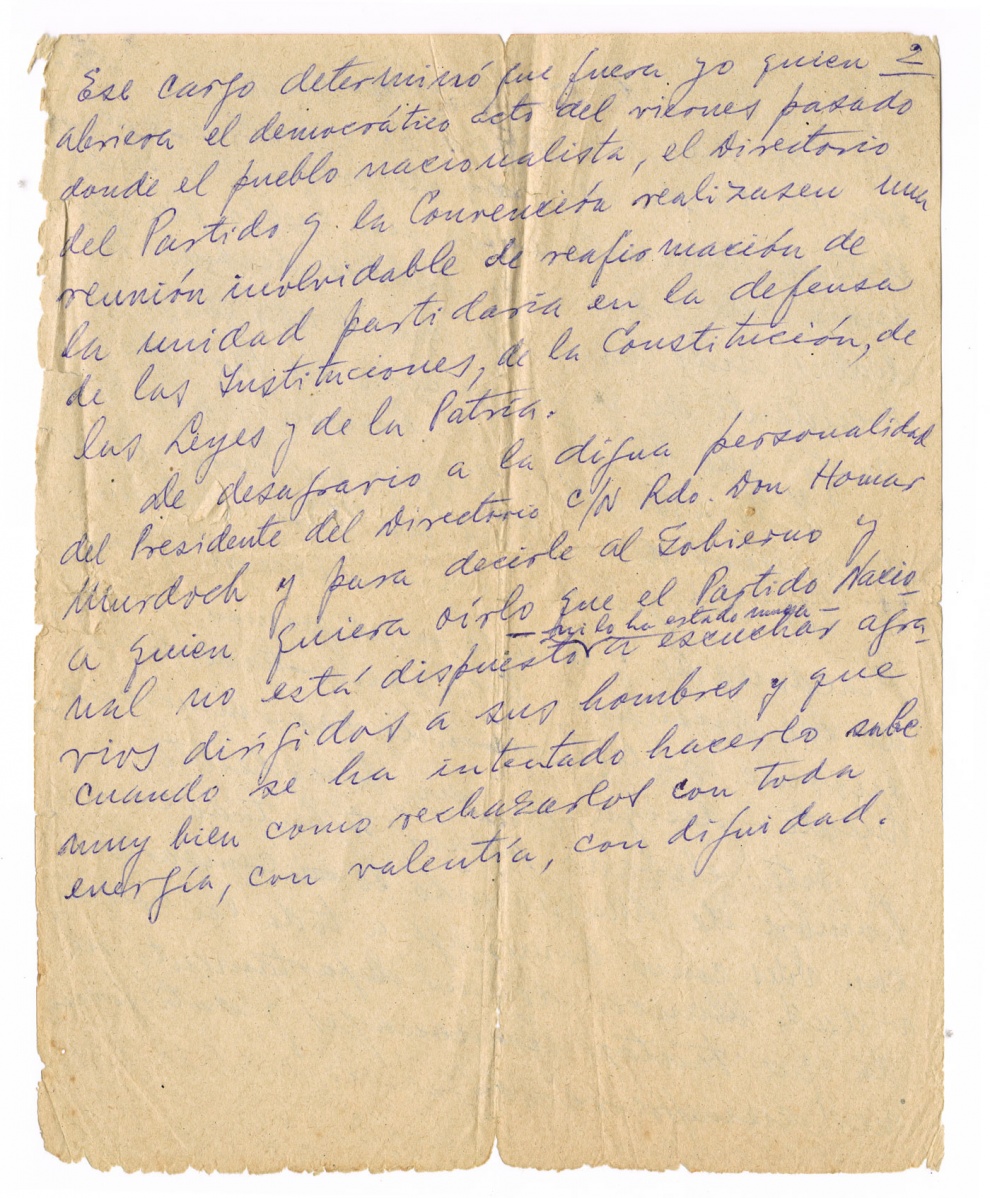 2
Ese cargo determinó que fuera yo quien
abriera el democrático acto del viernes pasado
donde el pueblo nacionalista, el Directorio
del Partido y la Convención realizasen una
reunión inolvidable de reafirmación de
la unidad partidaria en la defensa
de las Instituciones, de la Constitución, de
las Leyes y de la Patria.
De desagravio a la digna personalidad
del Presidente del Directorio C/N Rdo. Don Homar
Murdoch y para decirle al Gobierno y
a quien quiera oírlo que el Partido Nacio-
nal no está dispuesto – ni lo ha estado nunca – a escuchar agra-
vios dirigidos a sus hombres y que
cuando se ha intentado hacerlo sabe
muy bien como rechazarlos con toda
energía, con valentía, con dignidad.